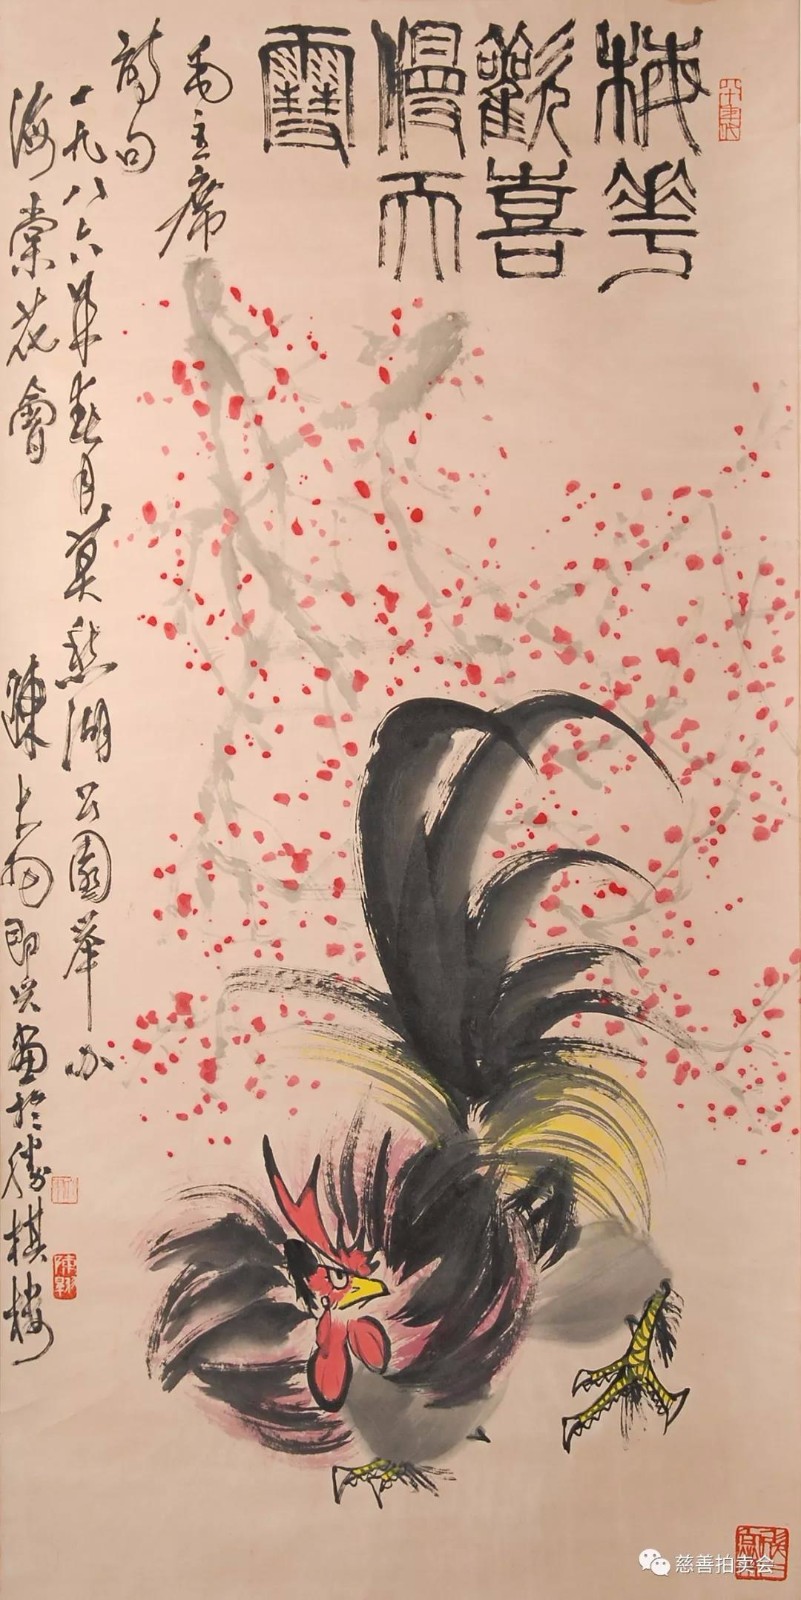 梅花
歡喜
漫天
雪
毛主席
詩句
一九八六年春月莫愁湖公園舉办
海棠花會 陳大羽即兴畫於勝棋楼
八十年代
慈善拍卖会